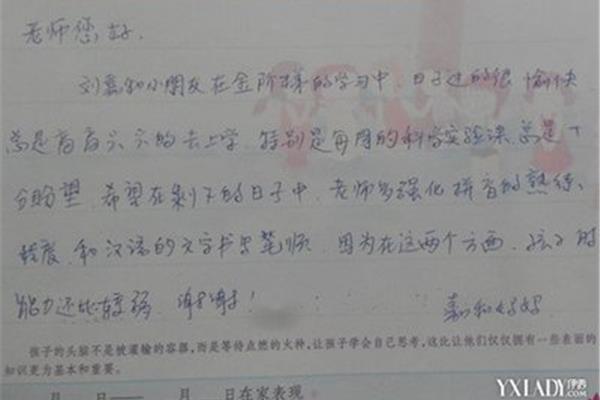 老师您好,
刘嘉和小朋友在金阶梯的学习中,日子过的很愉快
总是高高兴兴的去上学,特别是每周的科学实验课,总是十
分盼望,希望在剩下的日子中,老师多强化拼音的熟练、
和汉语的文字书写笔顺,因为在这两个方面,孩子的
能力还比较弱,谢谢!
嘉和妈妈
孩子的头脑不是被灌输的容器,而是等待点燃的火种,让孩子学会自己思考,这比让他们仅仅拥有一些表面的
知识更为基本和重要。
月 日—— 月 日在家表现
YXLADY.COM 伊秀